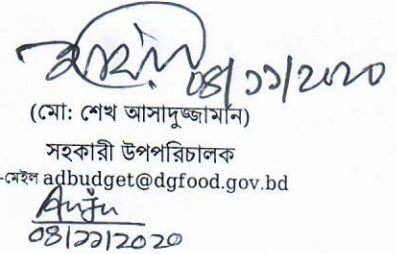 ০৪/১১/২০২০
(মো: শেখ আসাদুজ্জামান)
সহকারী উপপরিচালক
-মেইল adbudget@dgfood.gov.bd
Anju
০৪/১১/২০২০